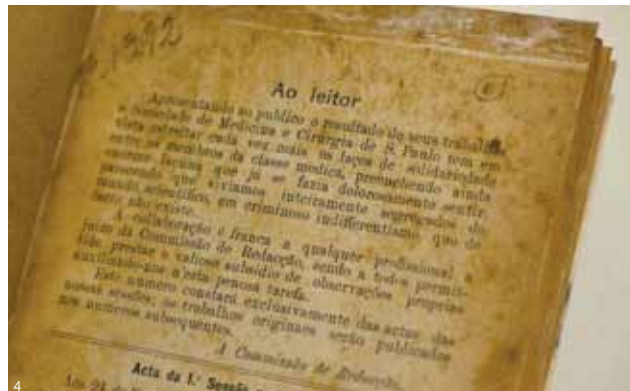 1292
Ao leitor
Apresentando ao publico o resultado de seus trabalhos,
a Sociedade de Medicina e Cirurgia de S. Paulo tem em
vista estreitar cada vez mais os laços de solidariedade
entre os membros da classe medica, preenchendo ainda
lacuna que já se fazia dolorosamente sentir,
parecendo que viviamos inteiramente segregados do
mundo scientifico, em criminoso indifferentismo, que de
facto não existe.
A collaboração é franca a qualquer profissional a
juizo da Commissão de Redacção, sendo a todos permit-
tido prestar o valioso subsidio de observações proprias
auxiliando-nos n'esta penosa tarefa.
Este numero constará exclusivamente das actas das
nossas sessões; os trabalhos originaes serão publicados
nos numeros subsequentes.
A Commissão de Redacção.
Acta da 1.ª Sessão
Aos 24 de
4